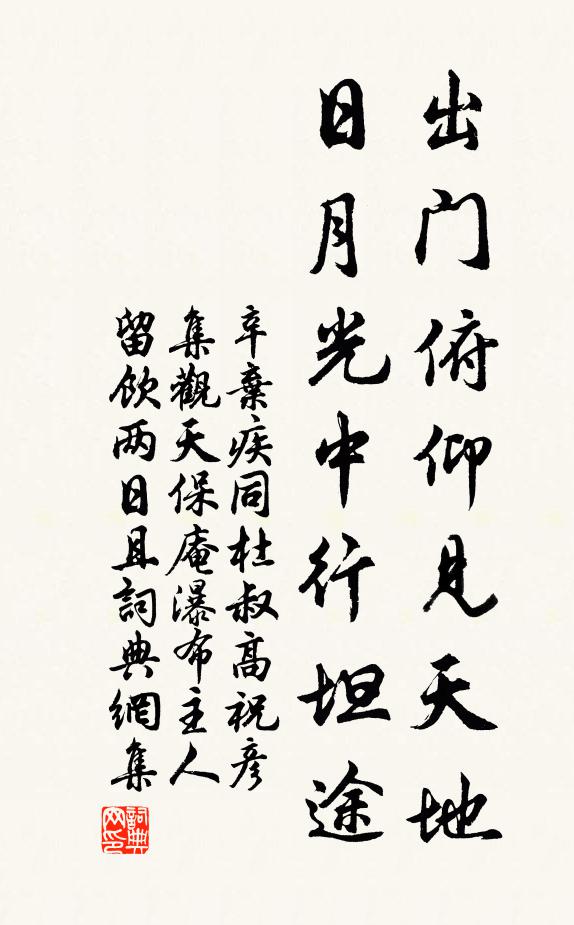 出门俯仰见天地
日月光中行坦途
辛棄疾同杜叔高祝彦
集觀天保庵瀑布主人
留飲两日且詞典網集
詞典
网印